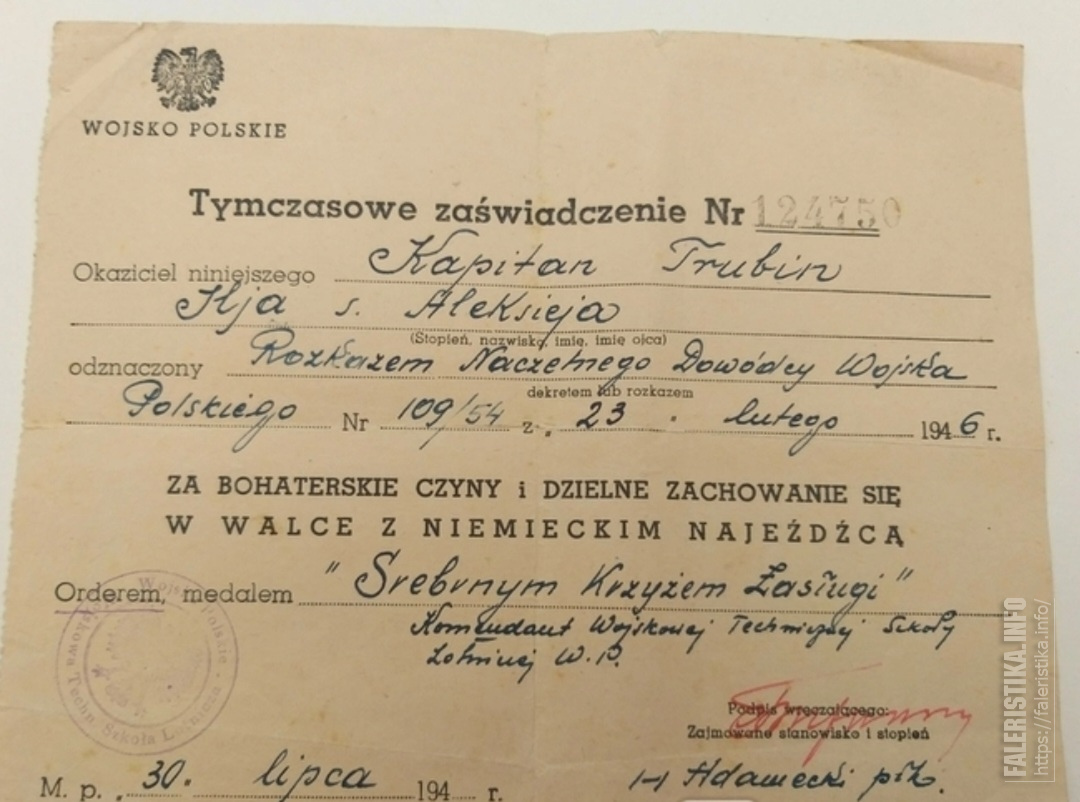 WOJSKO POLSKIE
Tymczasowe zaświadczenie Nr 124750
Okaziciel niniejszego Kapitan Trubin
Ilja s. Aleksieja
(Stopień, nazwisko, imię, imię ojca)
odznaczony Rozkazem Naczelnego Dowódcy Wojska
dekretem lub rozkazem
Polskiego Nr 109/54 z „ 23 " lutego 1946 r.
ZA BOHATERSKIE CZYNY i DZIELNE ZACHOWANIE SIĘ
W WALCE Z NIEMIECKIM NAJEŹDŹCĄ
Orderem, medalem "Srebrnym Krzyżem Zasługi"
Komendant Wojskowej Technicznej Szkoły
Lotniczej W. P.
Wojsko Polskie - Wojskowa Techn. Szkoła Lotnicza
Podpis wręczającego:
Zajmowane stanowisko i stopień
M. p. „ 30. lipca 194 r.
Adamecki płk.
FALERISTIKA.INFO
https://faleristika.info/